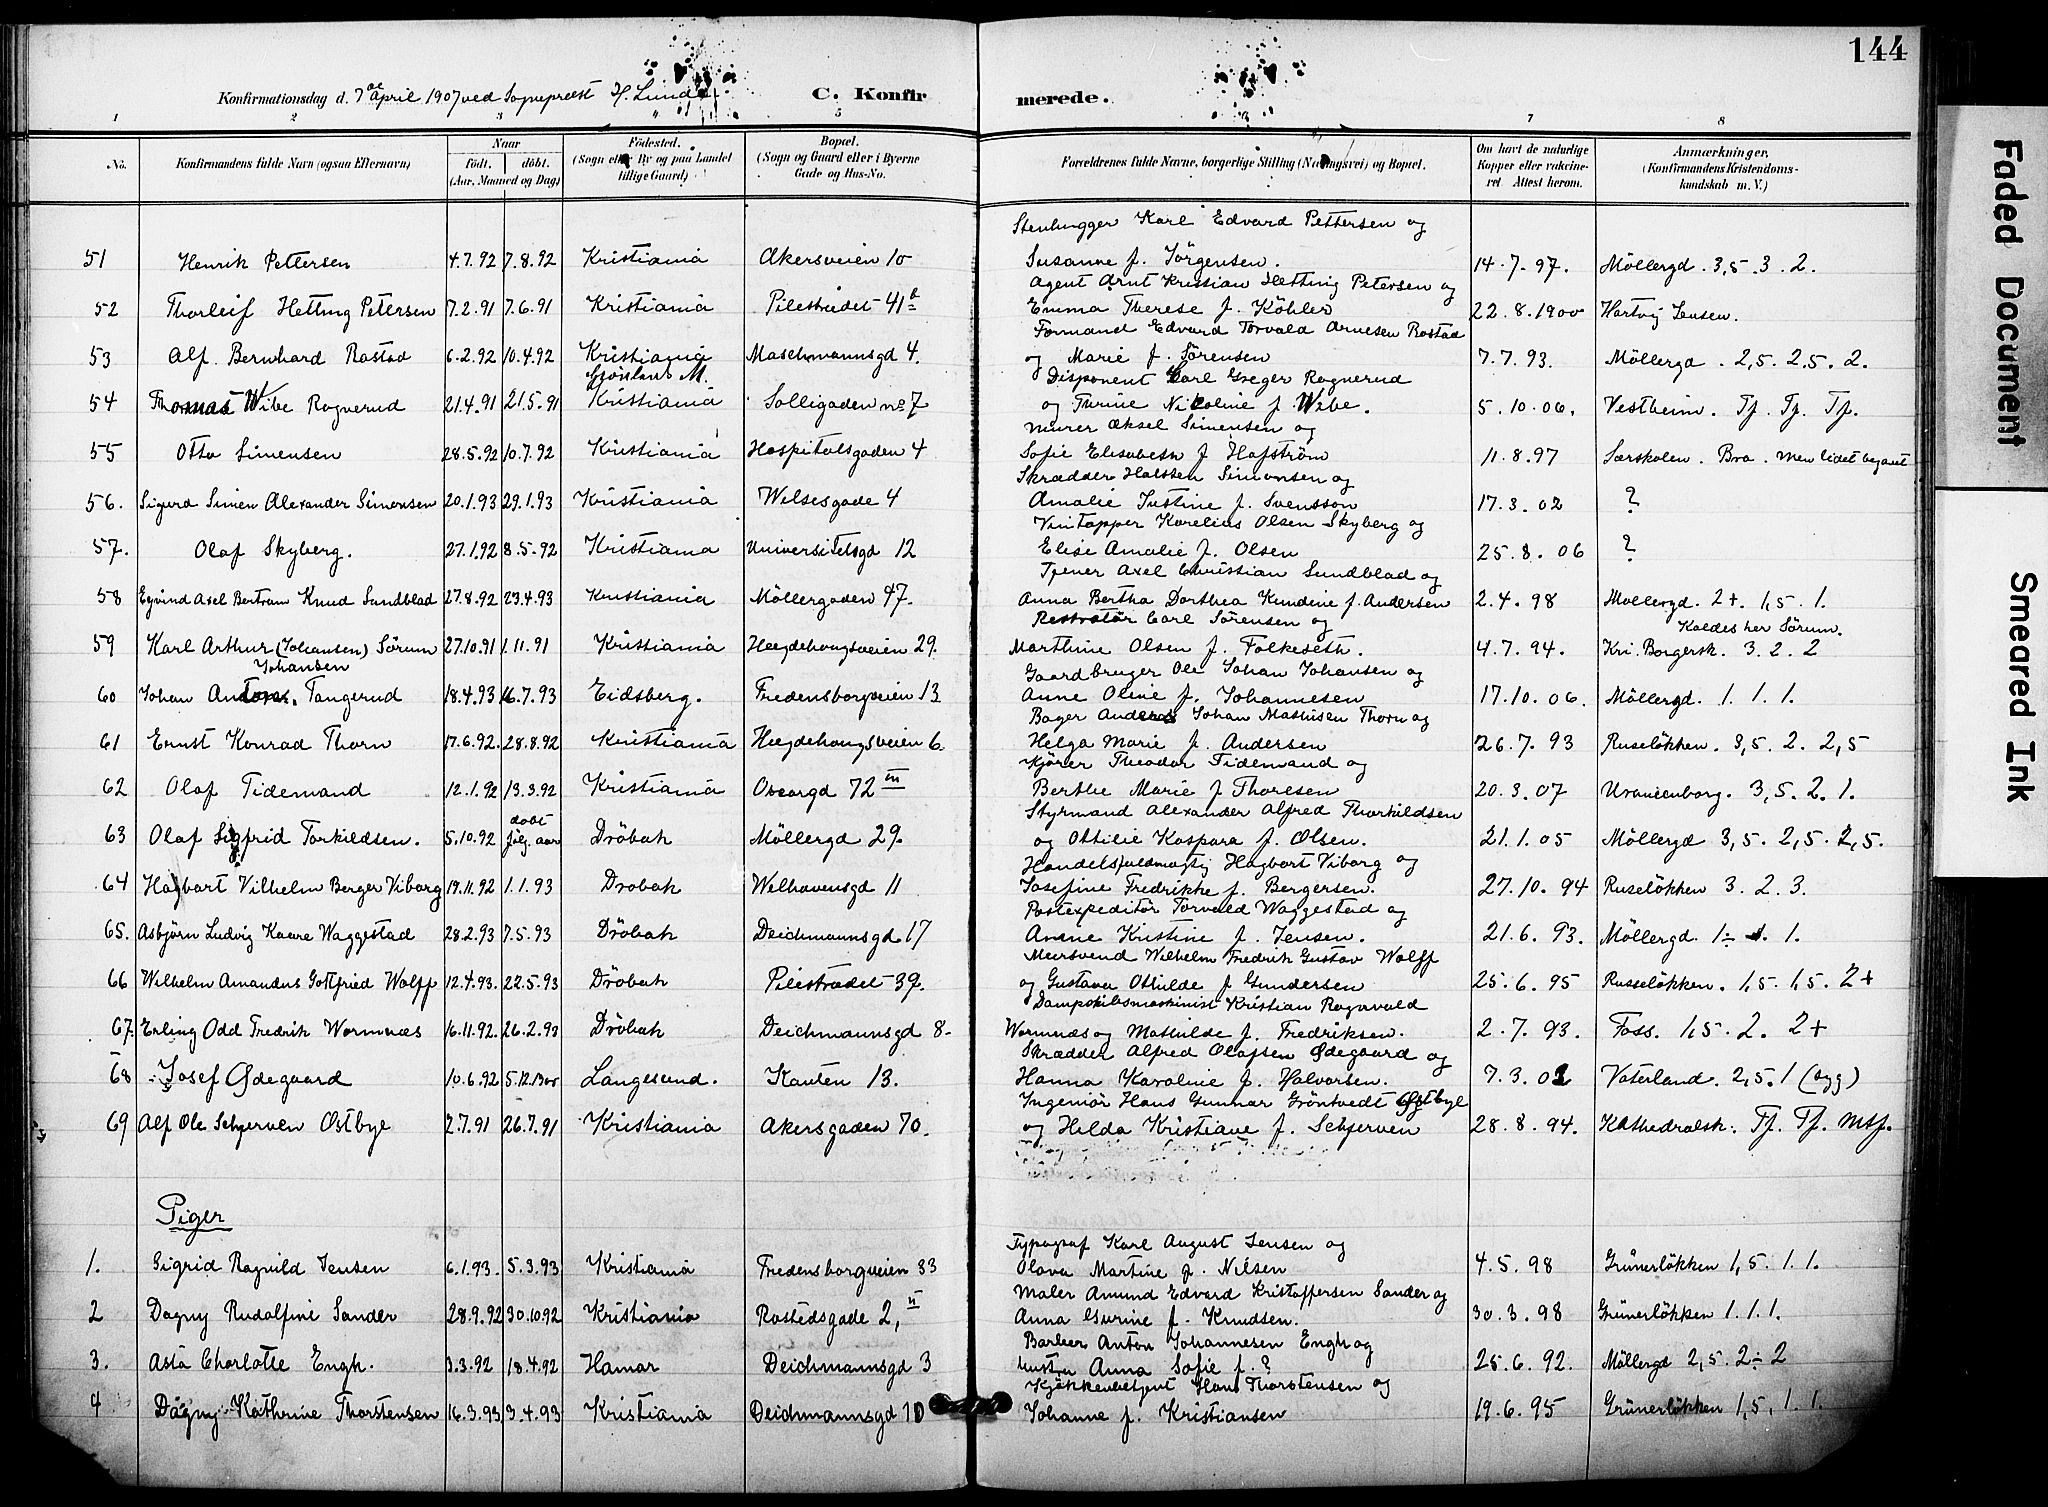 144
Konfirmationsdag d. 7de April 1907 ved Sognepræst H. Lunde.
C. Konfirmerede.
1 2 3 4 5 7 8
No.
Konfirmandens fulde Navn (ogsaa Efternavn)
Naar
født. døbt.
(Aar, Maaned og Dag)
Fødested.
(Sogn eller By og paa Landet tillige Gaard)
Bopæl.
(Sogn og Gaard eller i Byerne Gade og Hus-No.
Forældrenes fulde Navne, borgerlige Stilling (Næringsvei) og Bopæl.
Om havt de naturlige Kopper eller vakcineret Attest herom.
Anmærkninger,
(Konfirmandens Kristendomskundskab m. V.)
51 Henrik Pettersen 4.7.92 7.8.92 Kristiania Akersveien 10 Stenhugger Karl Edvard Pettersen og Susanne f. Jörgensen. 14.7.97. Möllergd. 3,5. 3. 2.
52 Thorleif Hetting Petersen 7.2.91 7.6.91 Kristiania Pilestrædet 41b Agent Arnt Kristian Hetting Petersen og Emma Therese f. Köhler 22.8.1900 Hartvig Jensen.
53 Alf Bernhard Rostad 6.2.92 10.4.92 Kristiania Maschmannsgd 4. Formand Edvard Torvald Arnesen Rostad og Marie f. Sörensen 7.7.93. Möllergd. 2,5. 2,5. 2.
54 Thomas Wibe Rognerud 21.4.91 21.5.91 Grönland M. Kristiania Solligaden no 7 Disponent Carl Greger Rognerud og Turine Nicoline f. Wibe. 5.10.06. Vestheim. Tf. Tf. Tf.
55 Otto Simensen 28.5.92 10.7.92 Kristiania Hospitalsgaden 4 Murer Aksel Simensen og Sofie Elisabeth f Hafström 11.8.97 Særskolen. Bra. men lidet begavet
56. Sigurd Simen Alexander Simonsen 20.1.93 29.1.93 Kristiania Welsesgade 4 Skrædder Halsten Simonsen og Amalie Justine f. Svensson 17.3.02 ?
57. Olaf Skyberg. 27.1.92 8.5.92 Kristiania Universitetsgd 12 Vintapper Karelius Olsen Skyberg og Elise Amalie f. Olsen 25.8.06 ?
58 Eyvind Axel Bertram Knud Sundblad 27.8.92 23.4.93 Kristiania Möllergaden 47. Tjener Axel Christian Sundblad og Anna Bertha Dorthea Kundine f. Andersen 2.4.98 Mollergd. 2+. 1,5. 1.
59 Karl Arthur (Johansen) Sörum 27.10.91 1.11.91 Kristiania Hegdehaugsveien 29. Restratör Carl Sörensen og Marthine Olsen f. Folkeseth. 4.7.94. Kaldes her Sörum. Kri. Borgersk. 3. 2. 2
60 Johan Anton Johansen Tangerud 18.4.93 16.7.93 Eidsberg. Fredensborgveien 13 Gaardbruger Ole Johan Johansen og Anne Oline f. Johannesen 17.10.06. Möllergd. 1. 1. 1.
61 Ernst Konrad Thorn 17.6.92. 28.8.92 Kristiania Hegdehaugsveien 6. Bager Anders Johan Mathisen Thorn og Helga Marie f. Andersen 26.7.93 Ruselökken. 3,5. 2. 2,5
62 Olaf Tidemand 12.1.92 13.3.92 Kristiania Oscargd 72 III Kjører Theodor Tidemand og Berthe Marie f Thoresen 20.3.07 Uranienborg. 3,5. 2. 1.
63 Olaf Sigfrid Torkildsen. 5.10.92 døbt følg. aar Dröbak Möllergd 29. Styrmand Alexander Alfred Thorkildsen og Ottilie Kaspara f. Olsen. 21.1.05 Möllergd 3,5. 2,5. 2,5.
64 Hagbart Vilhelm Berger Viborg 19.11.92 1.1.93 Dröbak Welhavensgd 11 Handelsfuldmægtig Hagbart Viborg og Josefine Fredrikke f. Bergersen. 27.10.94 Ruselökken 3. 2. 3.
65. Asbjörn Ludvig Kaare Waggestad 28.2.93 7.5.93 Dröbak Deichmannsgd 17 Postexpeditör Torvald Waggestad og Anine Kristine f. Jensen. 21.6.93. Möllergd. 1÷ 1. 1.
66 Wilhelm Amandus Gottfried Wolff 12.4.93. 22.5.93 Dröbak Pilestrædet 39. Meursvend Wilhelm Fredrik Gustav Wolff og Gustava Othilde f Gundersen 25.6.95 Russelökken. 1,5. 1,5. 2+
67. Erling Odd Fredrik Wormnæs 16.11.92. 26.2.93 Dröbak Deichmannsgd 8. Dampskibsmaskinist Kristian Ragnvald Wormnæs og Mathilde f. Fredriksen. 2.7.93. Foss. 1,5. 2. 2+
68 Josef Ødegaard 10.6.92 5.12.1900 Langesund. Kauten 13. Skrædder Alfred Olafsen Ødegaard og Hanna Karoline f. Halvorsen. 7.3.02 Vaterland. 2,5. 1 (syg)
69 Alf Ole Schjerven Østbye 2.7.91 26.7.91 Kristiania Akersgaden 70. Ingeniör Hans Gunnar Gröntvedt Østbye og Hilda Kristiane f. Schjerven 28.8.94. Kathedralsk. Tf. Tf. Mtf.
Piger
1. Sigrid Ragnild Jensen 6.1.93. 5.3.93 Kristiania Fredensborgveien 33 Typograf Karl August Jensen og Olava Martine f. Nilsen 4.5.98 Grünerlökken 1,5. 1. 1.
2 Dagny Rudolfine Sander 28.9.92 30.10.92 Kristiania Rostedsgade 2, II Maler Amund Edvard Kristoffersen Sander og Anna Gurine f. Knudsen. 30.3.98 Grünerlökken 1. 1. 1.
3. Asta Charlotte Engh. 3.3.92 18.4.92 Hamar Deichmannsgd 3 Barber Anton Johannesen Engh og hustru Anna Sofie f. ? 25.6.92. Möllergd 2,5. 2÷ 2
4 Dagny Kathrine Thorstensen 16.3.93 3.4.93 Kristiania Deichmannsgd 10 Kjøkkenbetjent Hans Thorstensen og Johanne f. Kristiansen 19.6.95 Grünerlökken 1,5. 1. 1.
Faded Document
Smeared Ink